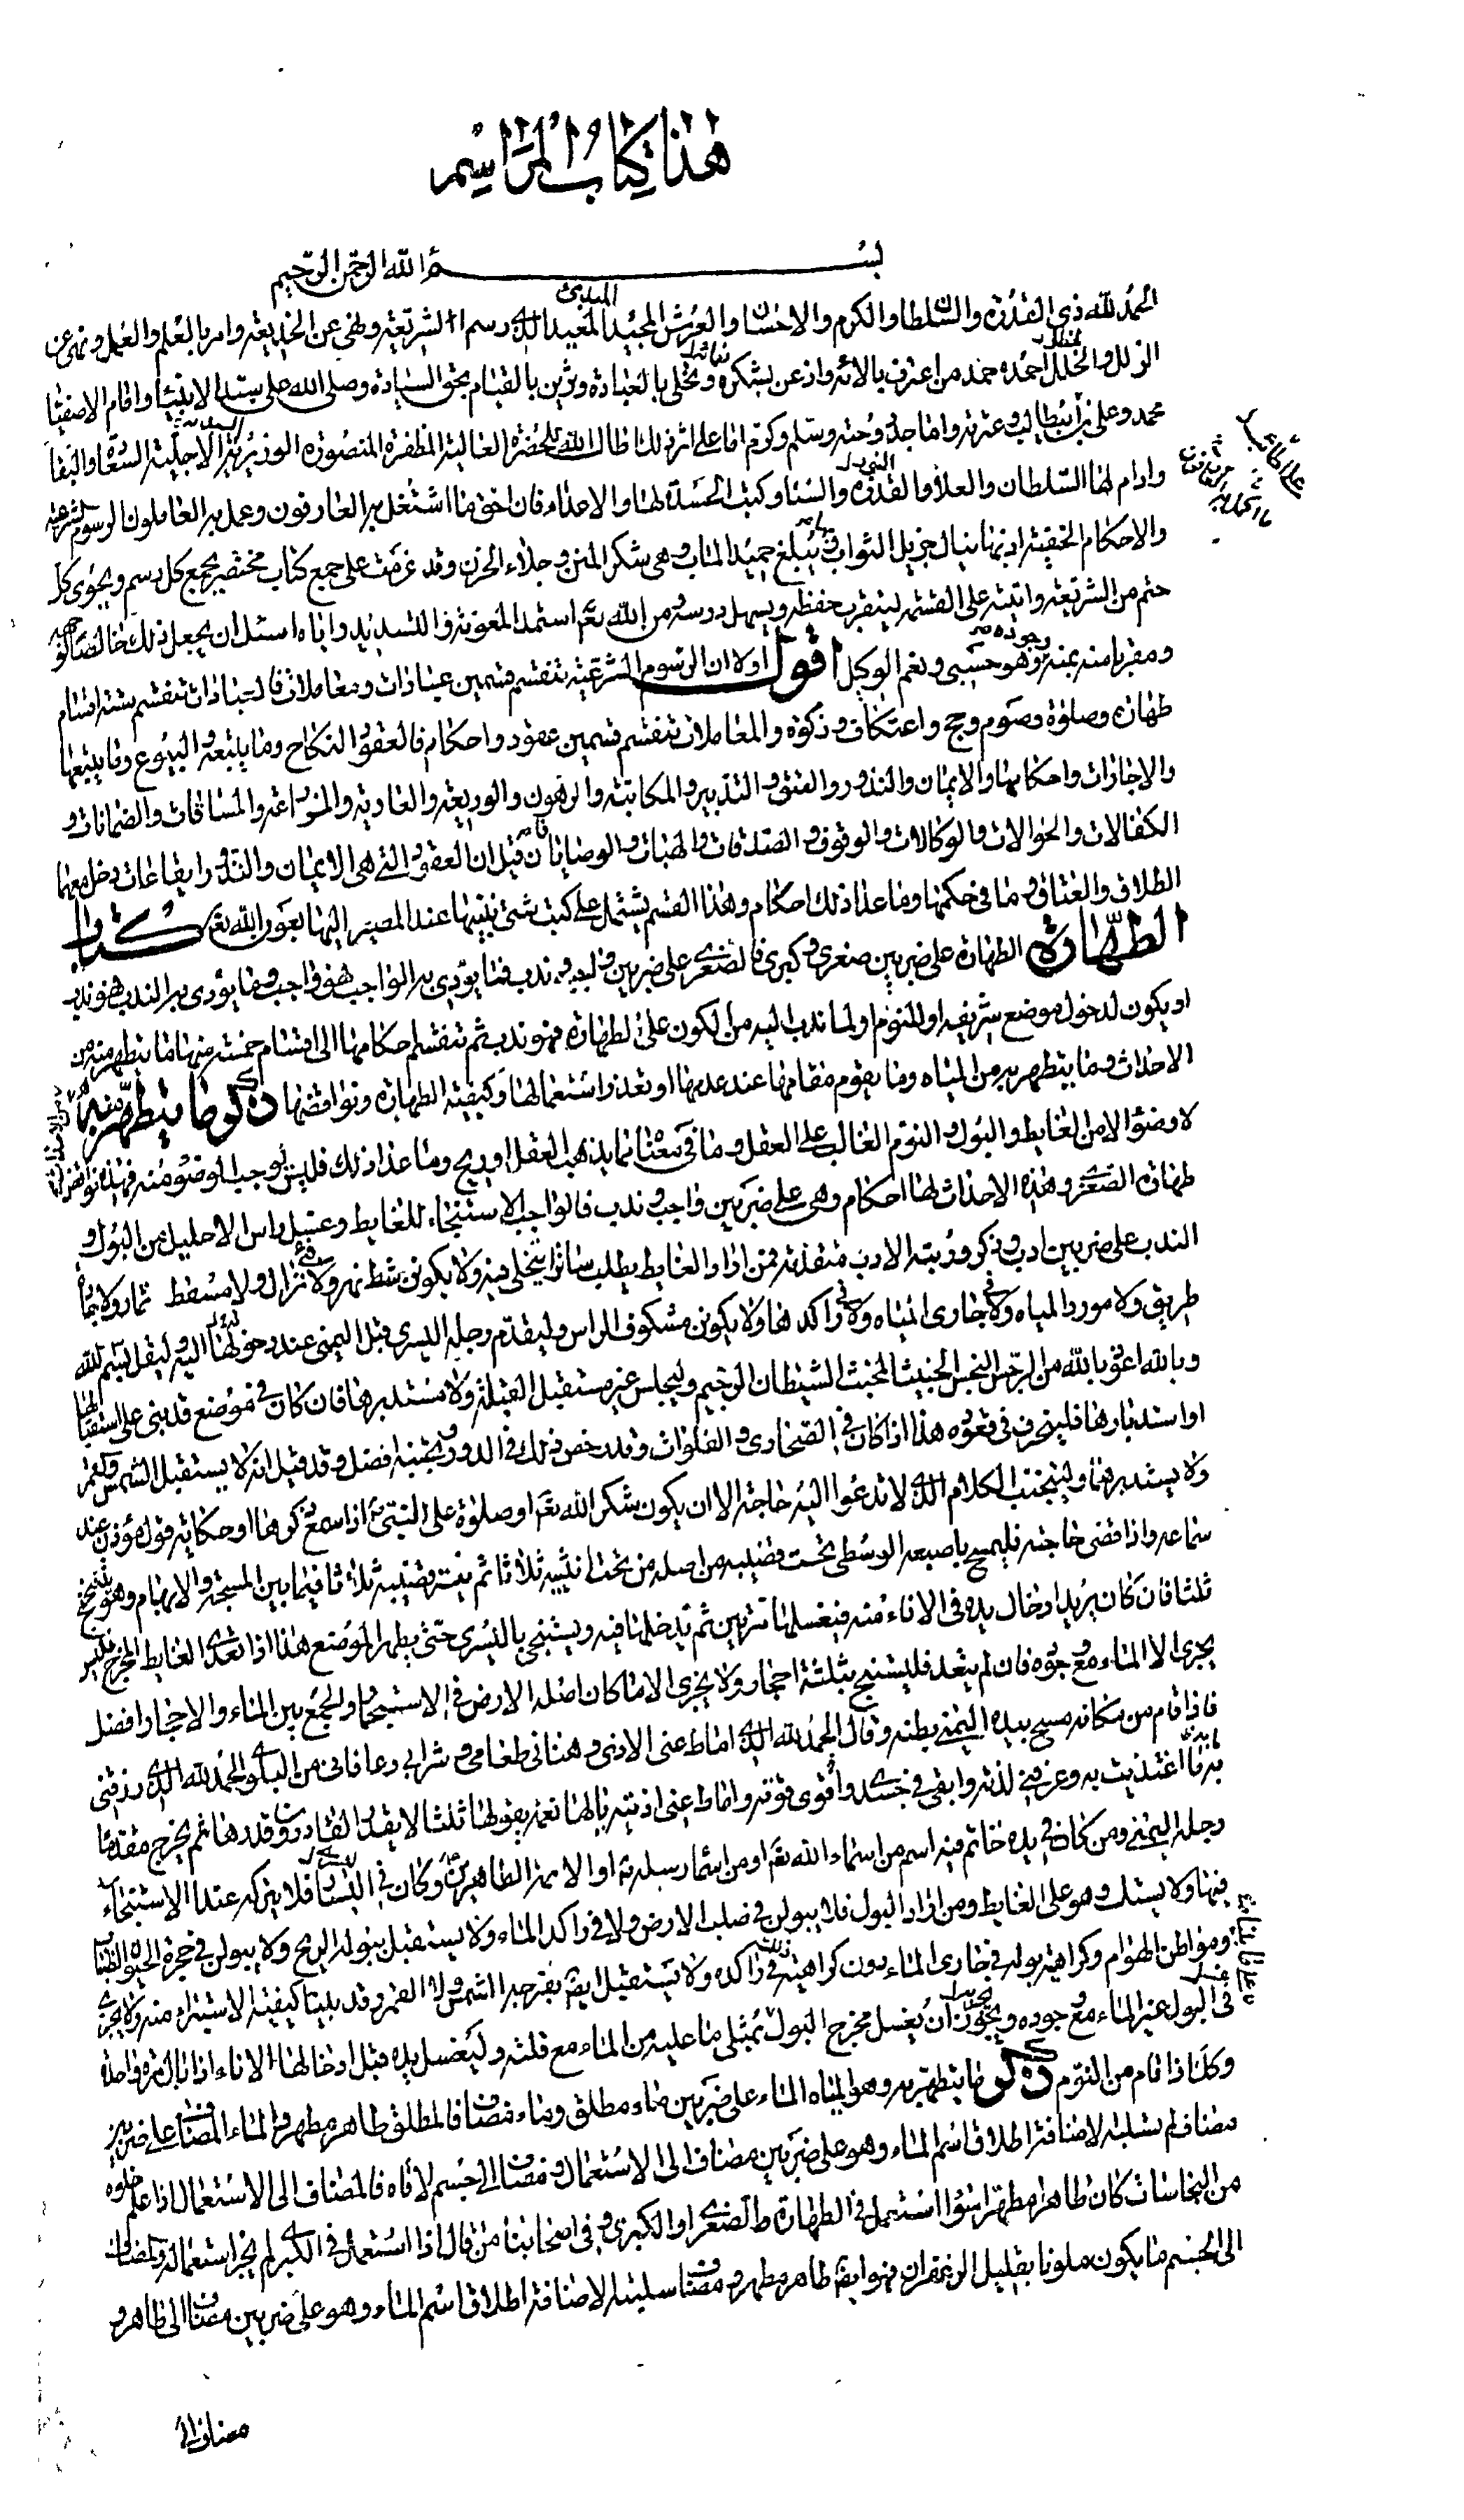 هذا كتاب المراسم
بسم الله الرحمن الرحيم
المبدئ
الحمد لله ذي القدرة والسلطان والكرم والاحسان والعرش المجيد المعيد الذي رسم الشريعة ونهى عن الخديعة وامر بالعلم والعمل ونهى عن
الزلل والخلل احمده حمد من اعترف بالائه واذعن بشكره وتحلى بالعبادة وتزين بالقيام بحق السيادة وصلى الله على سيد الانبياء وامام الاصفياء
محمد وعلى بن ابيطالب وعترته واماجد وحته وسلم وكرم اما على اثر ذلك اطال الله للحضرة العالية المظفرة المنصورة الوزيرية الاجلية السعا والبقا
وادام لها السلطان والعلا والقدرة والسنا وكبت الحسدة لها والاعداء فان احق ما اشتغل به العارفون وعمل به العاملون الرسوم الشرعية
والاحكام الحقيقية اذ بها ينال جزيل الثواب ويبلغ حميد الماب وهى شكر المنن وجلاء الحزن وقد عزمت على جمع كتاب مختصر يجمع كل رسم ويحوى كل
حتم من الشريعة وابنيه على القسمة ليقرب حفظه ويسهل درسه ومن الله تع استمد المعونة والتسديد واياه اسئل ان يجعل ذلك خالصا لوجهه
ومقربا منه بمنه وجوده وهو حسبى ونعم الوكيل اقول اولا ان الرسوم الشرعية تنقسم قسمين عبادات ومعاملات فالعبادات تنقسم ستة اقسام
طهارة وصلوة وصوم وحج واعتكاف وزكوة والمعاملات تنقسم قسمين عقود واحكام فالعقود النكاح وما يتبعه والبيوع وما يتبعها
والاجارات واحكامها والايمان والنذور والعتق والتدبير والمكاتبة والرهون والوديعة والعارية والمزارعة والمساقات والضمانات و
الكفالات والحوالات والوكالات والوقوف والصدقات والهبات والوصايا فان قيل ان العقود التي هى الايمان والنذور ايقاعات دخل معها
الطلاق والعتاق وما في حكمها وما عدا ذلك احكام وهذا القسم يشتمل على كتب شتى نبينها عند المصير اليها بعون الله تع كتاب
الطهارة الطهارة على ضربين صغرى وكبرى فالصغرى على ضربين واجب وندب فما يؤدى به الواجب فهو واجب وما يؤدى به الندب فهو ندب
او يكون لدخول موضع شريف او للنوم او لما ندب اليه من الكون على الطهارة فهو ندب ثم تنقسم احكامها الى اقسام خمسة منها ما يتطهر منه من
الاحداث وما يتطهر به من المياه وما يقوم مقامها عند عدمها او تعذر استعمالها وكيفية الطهارة ونواقضها ذكر ما يتطهر منه
لا وضؤ الا من الغايط والبول والنوم الغالب على العقل وما في معناه مما يذهب العقل او ريح وما عدا ذلك فليس يوجب الوضوء منه فهذه نواقض
طهارة الصغرى وهذه الاحداث لها احكام وهى على ضربين واجب وندب فالواجب الاستنجاء للغايط وغسل راس الاحليل من البول و
الندب على ضربين ادب وذكر ورتبة الادب متقدمة فمن اراد الغايط يطلب ساترا يتخلى فيه ولا يكون شط نهر ولا في نزال ولا مسقط ثمار ولا
طريق ولا مورد المياه ولا في جارى المياه ولا في راكدها ولا يكون مكشوف الراس وليقدم رجله اليسرى قبل اليمنى عند دخولها اليه وليقل بسم الله
وبالله اعوذ بالله من الرجس النجس الخبيث المخبث الشيطان الرجيم وليجلس غير مستقبل القبلة ولا مستدبرها فان كان في موضع قد بنى على استقبالها
او استدبارها فلينحرف في قعوده هذا اذا كان في الصحارى والفلوات وقد رخص ذلك في الدور وتجنبه افضل وقد قيل انه لا يستقبل الشمس والقمر
ولا يستدبرهما وليتجنب الكلام الذي لا تدعو اليه حاجة الا ان يكون شكر الله تع او صلوة على النبي اذا سمع ذكرها او حكاية قول مؤذن عند
سماعه واذا قضى حاجته فليمسح باصبعه الوسطى تحت قضيبه من اصله من تحت انثييه ثلاثا ثم ينتر قضيبه ثلاثا فيما بين المسبحة والابهام وهو يتنحنح
ثلثا فان كان يريد ادخال يده في الاناء منه فيغسلها مرتين ثم يدخلها فيه ويستنجى باليسرى حتى يطهر الموضع هذا اذا تعدى الغايط المخرج فليس
يجزى الا الماء مع وجوده فان لم يتعد فليستنج بثلثة احجار ولا يجزى الا ما كان اصله الارض في الاستجمار والجمع بين الماء والاحجار افضل
فاذا قام من مكانه مسح بيده اليمنى بطنه وقال الحمد لله الذي اماط عنى الاذى وهنانى طعامى وشرابى وعافانى من البلوى الحمد لله الذي رزقنى
ما اغتذيت به وعرفنى لذته وابقى في جسدى قوته واماط عنى اذيته يالها نعمة يقولها ثلثا لا يقدر القادرون قدرها ثم يخرج مقدما
رجله اليمنى ومن كان في يده خاتم فيه اسم من اسماء الله تع او من اسماء رسله او الائمة الطاهرين وكان في اليسار فلا يتركه عند الاستنجاء
فيها ولا يستك وهو على الغايط ومن اراد البول فلا يبولن في صلب الارض ولا في راكد الماء ولا يستقبل ببوله الريح ولا يبولن في حجرة الحيوان
ومواطن الهوام وكراهية بوله في جارى الماء دون كراهيته في راكده ولا يستقبل ايضا بفرجه الشمس ولا القمر وقد بينا كيفية الاستبراء منه ولا يجزى
في البول غير الماء مع وجوده ويجوز ان يغسل مخرج البول بمثلى ما عليه من الماء مع قلته وليغسل يده قبل ادخالها الاناء اذا بال مرة واحدة
وكذا اذا قام من النوم ذكر ما يتطهر به وهو المياه الماء على ضربين ماء مطلق وماء مضاف فالمطلق طاهر مطهر والماء المضاف على ضربين
مضاف لم تسلبه الاضافة اطلاق اسم الماء وهو على ضربين مضاف الى الاستعمال ومضاف الى جسم لاقاه فالمضاف الى الاستعمال اذا علم خلوه
من النجاسات كان طاهرا مطهرا سواء استعمل في الطهارة الصغرى او الكبرى وفى اصحابنا من قال اذا استعمل في الكبرى لم يجز استعماله والمضاف
الى الجسم ما يكون ملونا بقليل الزعفران فهو ايضا طاهر مطهر ومضاف سلبته الاضافة اطلاق اسم الماء وهو على ضربين مضاف الى طاهر و
مضاف الى